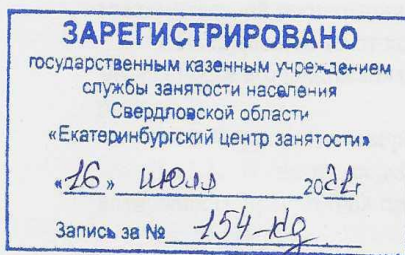 ЗАРЕГИСТРИРОВАНО
государственным казенным учреждением
службы занятости населения
Свердловской области
«Екатеринбургский центр занятости»
«16» июля 2021г
Запись за № 154-кд